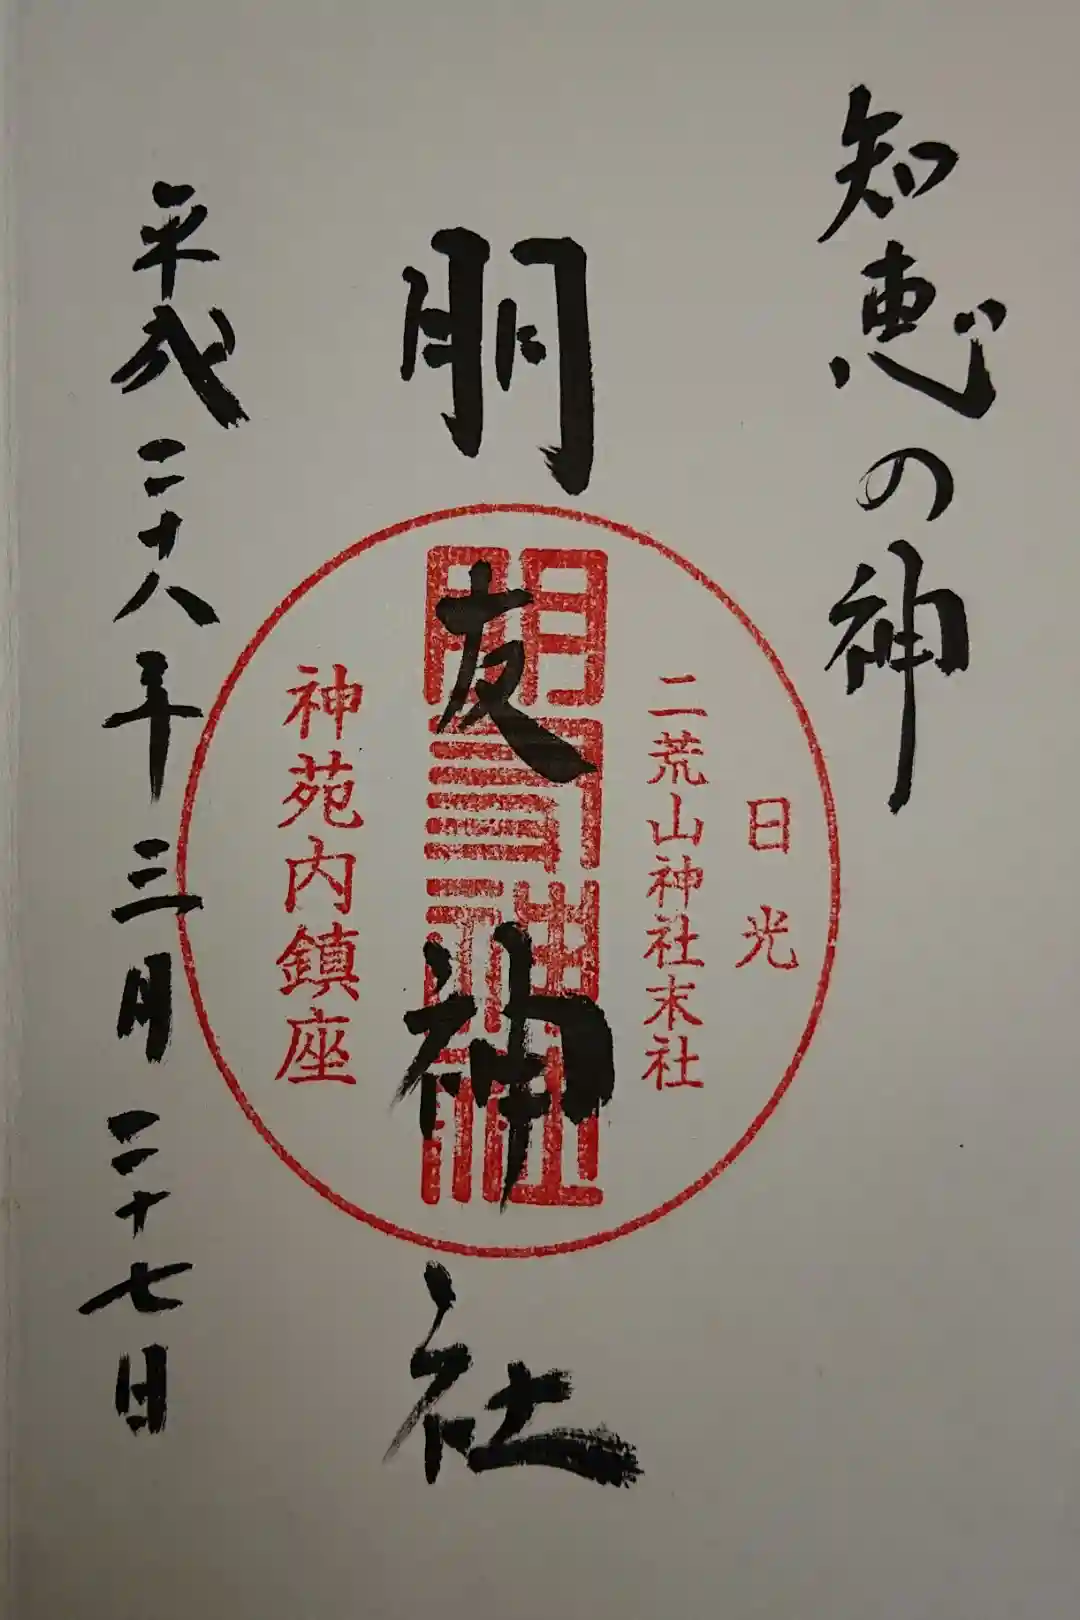 知恵の神
日光
二荒山神社末社
朋友神社
朋友神社
神苑内鎮座
平成二十八年三月二十七日